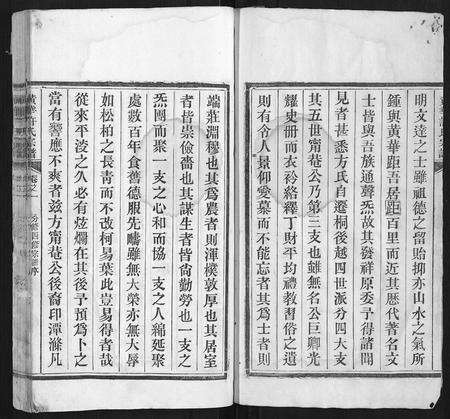 明文達之士雖祖德之留貽抑亦山水之氣所
鍾與黃華距吾居距百里而近其歷代著名文
士皆與吾族通聲炁故其發祥原委予得諸聞
見者甚悉方氏自遷桐後越四世派分四大支
其五世甯菴公乃第三支也雖無名公巨卿光
耀史冊而衣衿絡繹丁財平均禮教習俗之遺
則有令人景仰愛慕而不能忘者其為士者則
端莊淵穆也其為農者則渾樸敦厚也其居室
者皆崇儉嗇也其謀生者皆尚勤勞也一支之
炁團而聚一支之心和而協一支之人綿延聚
處數百年食舊德服先疇雖無大榮亦無大辱
如松柏之長青而不改柯易葉此豈易得者哉
從來平淩之久必有炫爛在其後予預為卜之
當有響應不爽者茲方甯菴公後裔印潭滌凡
黃華許氏宗譜
卷之一